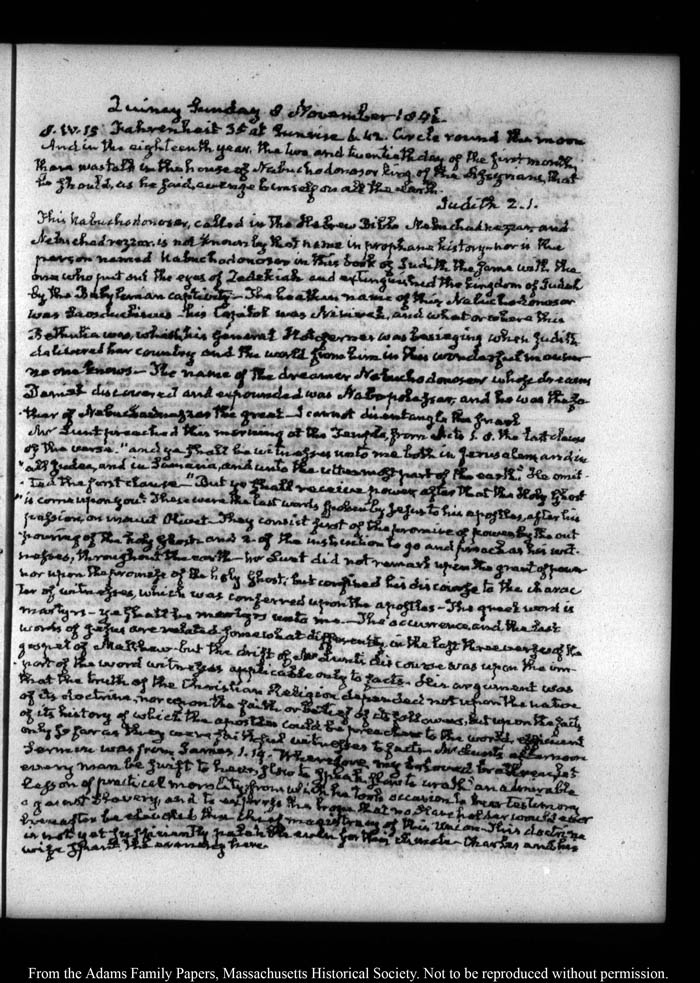 Quincy Sunday 8 November 184
S. W. 15 Fahrenheit 35 at Sunrise 6. 42. Circle round the moon
And in the eighteenth year, the two and twentieth day of the first month,
there was talk in the house of Nabuchodonosor king of the Assyrians, that
he should, as he said, avenge himself on all the earth.
Judith 2. 1.
This Nabuchodonosor, called in the Hebrew Bible Nebuchadnezzar, and
Nebuchadrezzar, is not known by that name in prophane history nor is the
person named Nabuchodonosor in this book of Judith the same with the
one who put out the eyes of Zedekiah and extinguished the kingdom of Judah
by the Babylonian captivity— The heathen name of this Nabuchodonosor
was Saosduchinus— his Capitol was Nineveh, and what or where this
Bethulia was, which his General Holofernes was besieging when Judith
delivered her country and the world from him in this wonderful manner
no one knows— The name of the dreamer Nabuchodonosor whose dreams
Daniel discovered and expounded was Nabopolassar, and he was the fa-
ther of Nebuchadnezzar the great— I cannot disentangle the snarl
Mr Lunt preached this morning at the Temple, from Acts 1. 8. the last clause
of the verse. "and ye shall be witnesses unto me both in Jerusalem, and in
"all Judea, and in Samaria, and unto the uttermost part of the earth." He omit-
ted the first clause— "But ye shall receive power after that the Holy Ghost
"is come upon you": These were the last words spoken by Jesus to his apostles, after his
passion, on mount Olivet— They consist first of the promise of power by the out
pouring of the holy Ghost and 2. of the instruction to go and preach as his wit-
nesses, throughout the earth— Mr Lunt did not remark upon the grant of power
nor upon the promise of the holy Ghost, but confined his discourse to the charac
ter of witnesses, which was conferred upon the apostles— The greek word is
martyrs— ye shall be martyrs unto me— The occurrence, and the last
words of Jesus are related somewhat differently in the last three verses of the
gospel of Matthew— but the drift of Mr Lunt's discourse was upon the im-
port of the word witnesses applicable only to facts— His argument was
that the truth of the Christian Religion depended not upon the nature
of its doctrine, nor upon the faith or belief of its followers, but upon the facts,
of its history of which the apostles could be preachers to the world, efficient
only so far as they were faithful witnesses to facts— Mr Lunt's afternoon
Sermon was from James 1. 19. "Wherefore, my beloved brethren, let
every man be swift to hear, slow to speak, slow to wrath" an admirable
lesson of practical morality, from which he took occasion to bear testimony
against Slavery, and to express the hope that no slave holder would ever
hereafter be elevated to the chief magistracy of this Union— This doctrine
is not yet sufficiently palatable even for this climate— Charles and his
wife spent the evening here.
From the Adams Family Papers, Massachusetts Historical Society. Not to be reproduced without permission.